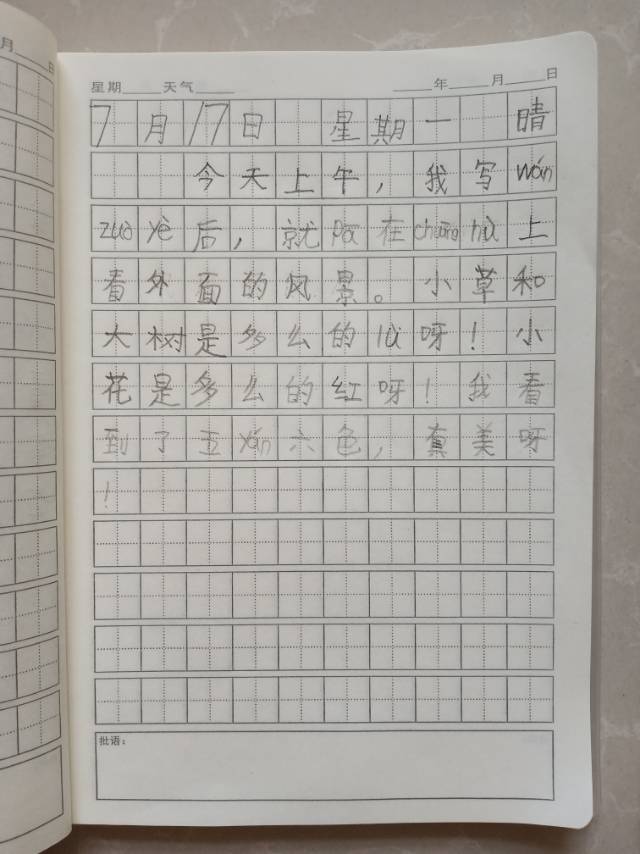 月 日
星期 天气 年 月 日
7月17日 星期一 晴
今天上午，我写wán
zuò yè后，就pā在chuāng hù上
看外面的风景。小草和
大树是多么的lǜ呀！小
花是多么的红呀！我看
到了五yán六色，真美呀
！
批语：